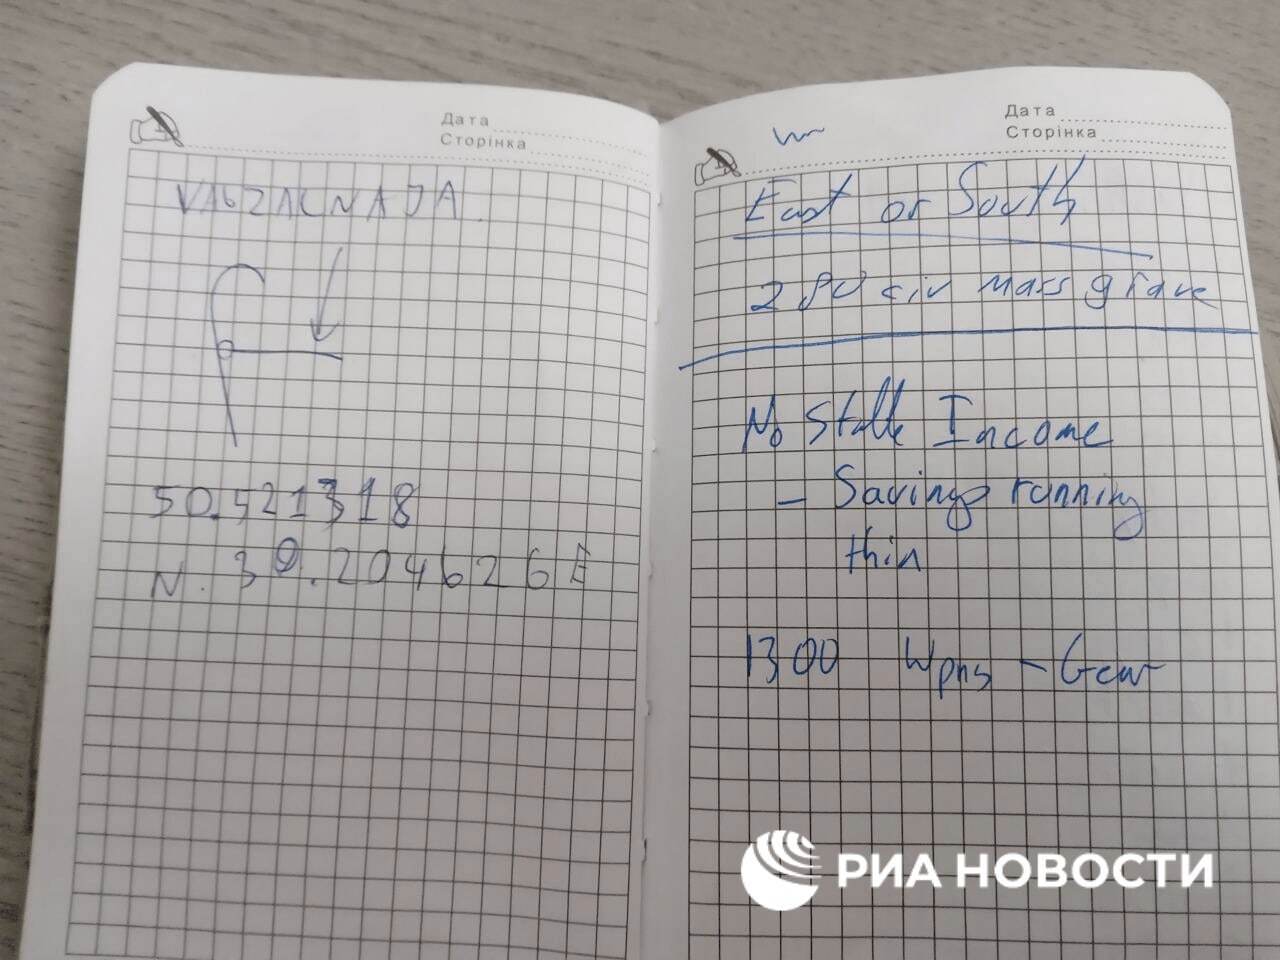 Дата
Сторінка
VAGZALNAJA.
50.521318
N. 30.204626 E
Дата
Сторінка
East or South
280 civ mass grave
No Stable Income
- Savings running
thin
1300 Wpns - Gear
РИА НОВОСТИ